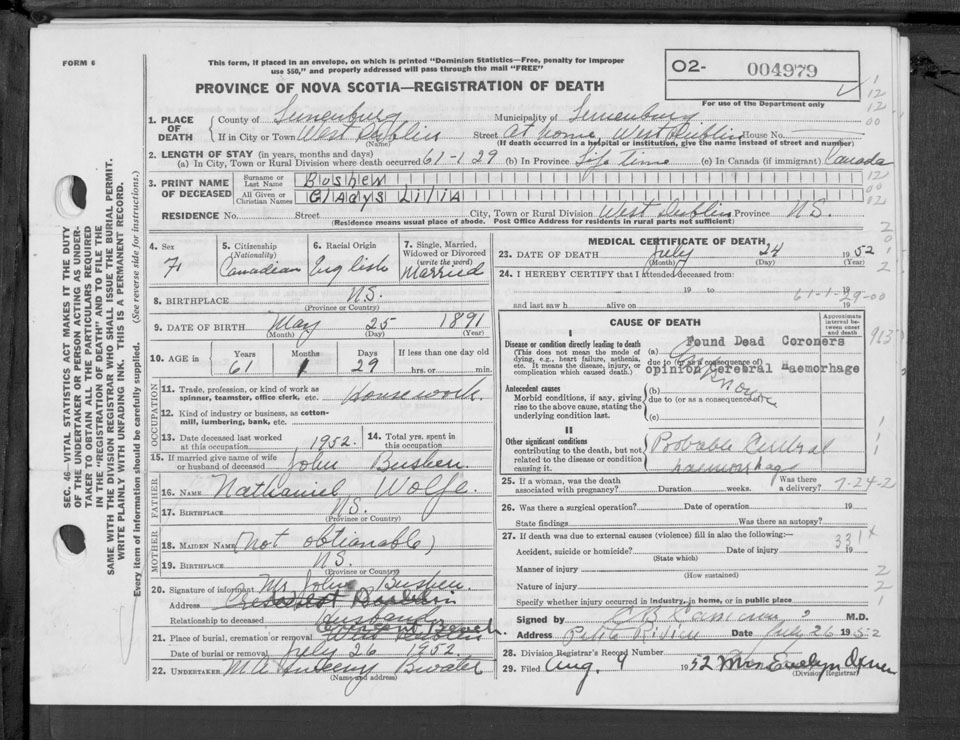 FORM 6
This form, if placed in an envelope, on which is printed "Dominion Statistics—Free, penalty for improper
use $50," and properly addressed will pass through the mail "FREE"
O2- 004979
PROVINCE OF NOVA SCOTIA—REGISTRATION OF DEATH
For use of the Department only
1. PLACE OF DEATH
County of Lunenburg Municipality of Lunenburg
If in City or Town West Dublin Street at home, West Dublin House No.
(Name) (If death occurred in a hospital or institution, give the name instead of street and number)
2. LENGTH OF STAY (in years, months and days)
(a) In City, Town or Rural Division where death occurred 61-1-29 (b) In Province Life time (c) In Canada (if immigrant) Canada
3. PRINT NAME OF DECEASED
Surname or Last Name Bushen
All Given or Christian Names Gladys Lilia
RESIDENCE No. Street City, Town or Rural Division West Dublin Province N.S.
(Residence means usual place of abode. Post Office Address for residents in rural parts not sufficient)
4. Sex F
5. Citizenship (Nationality) Canadian
6. Racial Origin English
7. Single, Married, Widowed or Divorced (write the word) Married
8. BIRTHPLACE N.S.
(Province or Country)
9. DATE OF BIRTH May 25 1891
(Month) (Day) (Year)
10. AGE in Years 61 Months 1 Days 29 If less than one day old hrs. or min.
OCCUPATION
11. Trade, profession, or kind of work as spinner, teamster, office clerk, etc. Housework.
12. Kind of industry or business, as cotton-mill, lumbering, bank, etc.
13. Date deceased last worked at this occupation 1952.
14. Total yrs. spent in this occupation
15. If married give name of wife or husband of deceased John Bushen.
FATHER
16. NAME Nathaniel Wolfe.
17. BIRTHPLACE N.S.
(Province or Country)
MOTHER
18. MAIDEN NAME (not obtianable)
19. BIRTHPLACE N.S.
(Province or Country)
20. Signature of informant Mr John Bushen.
Address
Relationship to deceased Husband
21. Place of burial, cremation or removal West Dublin
Date of burial or removal July 26 1952.
22. UNDERTAKER
(Name and address)
MEDICAL CERTIFICATE OF DEATH
23. DATE OF DEATH July 24 1952
(Month) (Day) (Year)
24. I HEREBY CERTIFY that I attended deceased from:
19 to 19
61-1-29-00
and last saw h alive on 19
CAUSE OF DEATH
Approximate interval between onset and death
I
Disease or condition directly leading to death
(This does not mean the mode of dying, e.g., heart failure, asthenia, etc. It means the disease, injury, or complication which caused death.)
(a) Found Dead Coroners
due to (or as a consequence of)
opinion Cerebral Haemorhage
Antecedent causes
Morbid conditions, if any, giving rise to the above cause, stating the underlying condition last.
(b)
due to (or as a consequence of)
(c)
II
Other significant conditions
contributing to the death, but not related to the disease or condition causing it.
Probable
haemorrhage
25. If a woman, was the death associated with pregnancy? Duration weeks. Was there a delivery? 7-24-2
26. Was there a surgical operation? Date of operation 19
State findings Was there an autopsy?
27. If death was due to external causes (violence) fill in also the following:—
331x
Accident, suicide or homicide? Date of injury 19
(State which)
Manner of injury
(How sustained)
Nature of injury
Specify whether injury occurred in industry, in home, or in public place
Signed by M.D.
Address Petite Riviere Date July 26 1952
28. Division Registrar's Record Number
29. Filed Aug. 9 1952 Mrs Evelyn
(Division Registrar)
SEC. 46—VITAL STATISTICS ACT MAKES IT THE DUTY
OF THE UNDERTAKER OR PERSON ACTING AS UNDER-
TAKER TO OBTAIN ALL THE PARTICULARS REQUIRED
IN THE "REGISTRATION OF DEATH" AND TO FILE THE
SAME WITH THE DIVISION REGISTRAR WHO SHALL ISSUE THE BURIAL PERMIT.
WRITE PLAINLY WITH UNFADING INK. THIS IS A PERMANENT RECORD.
Every item of information should be carefully supplied. (See reverse side for instructions.)